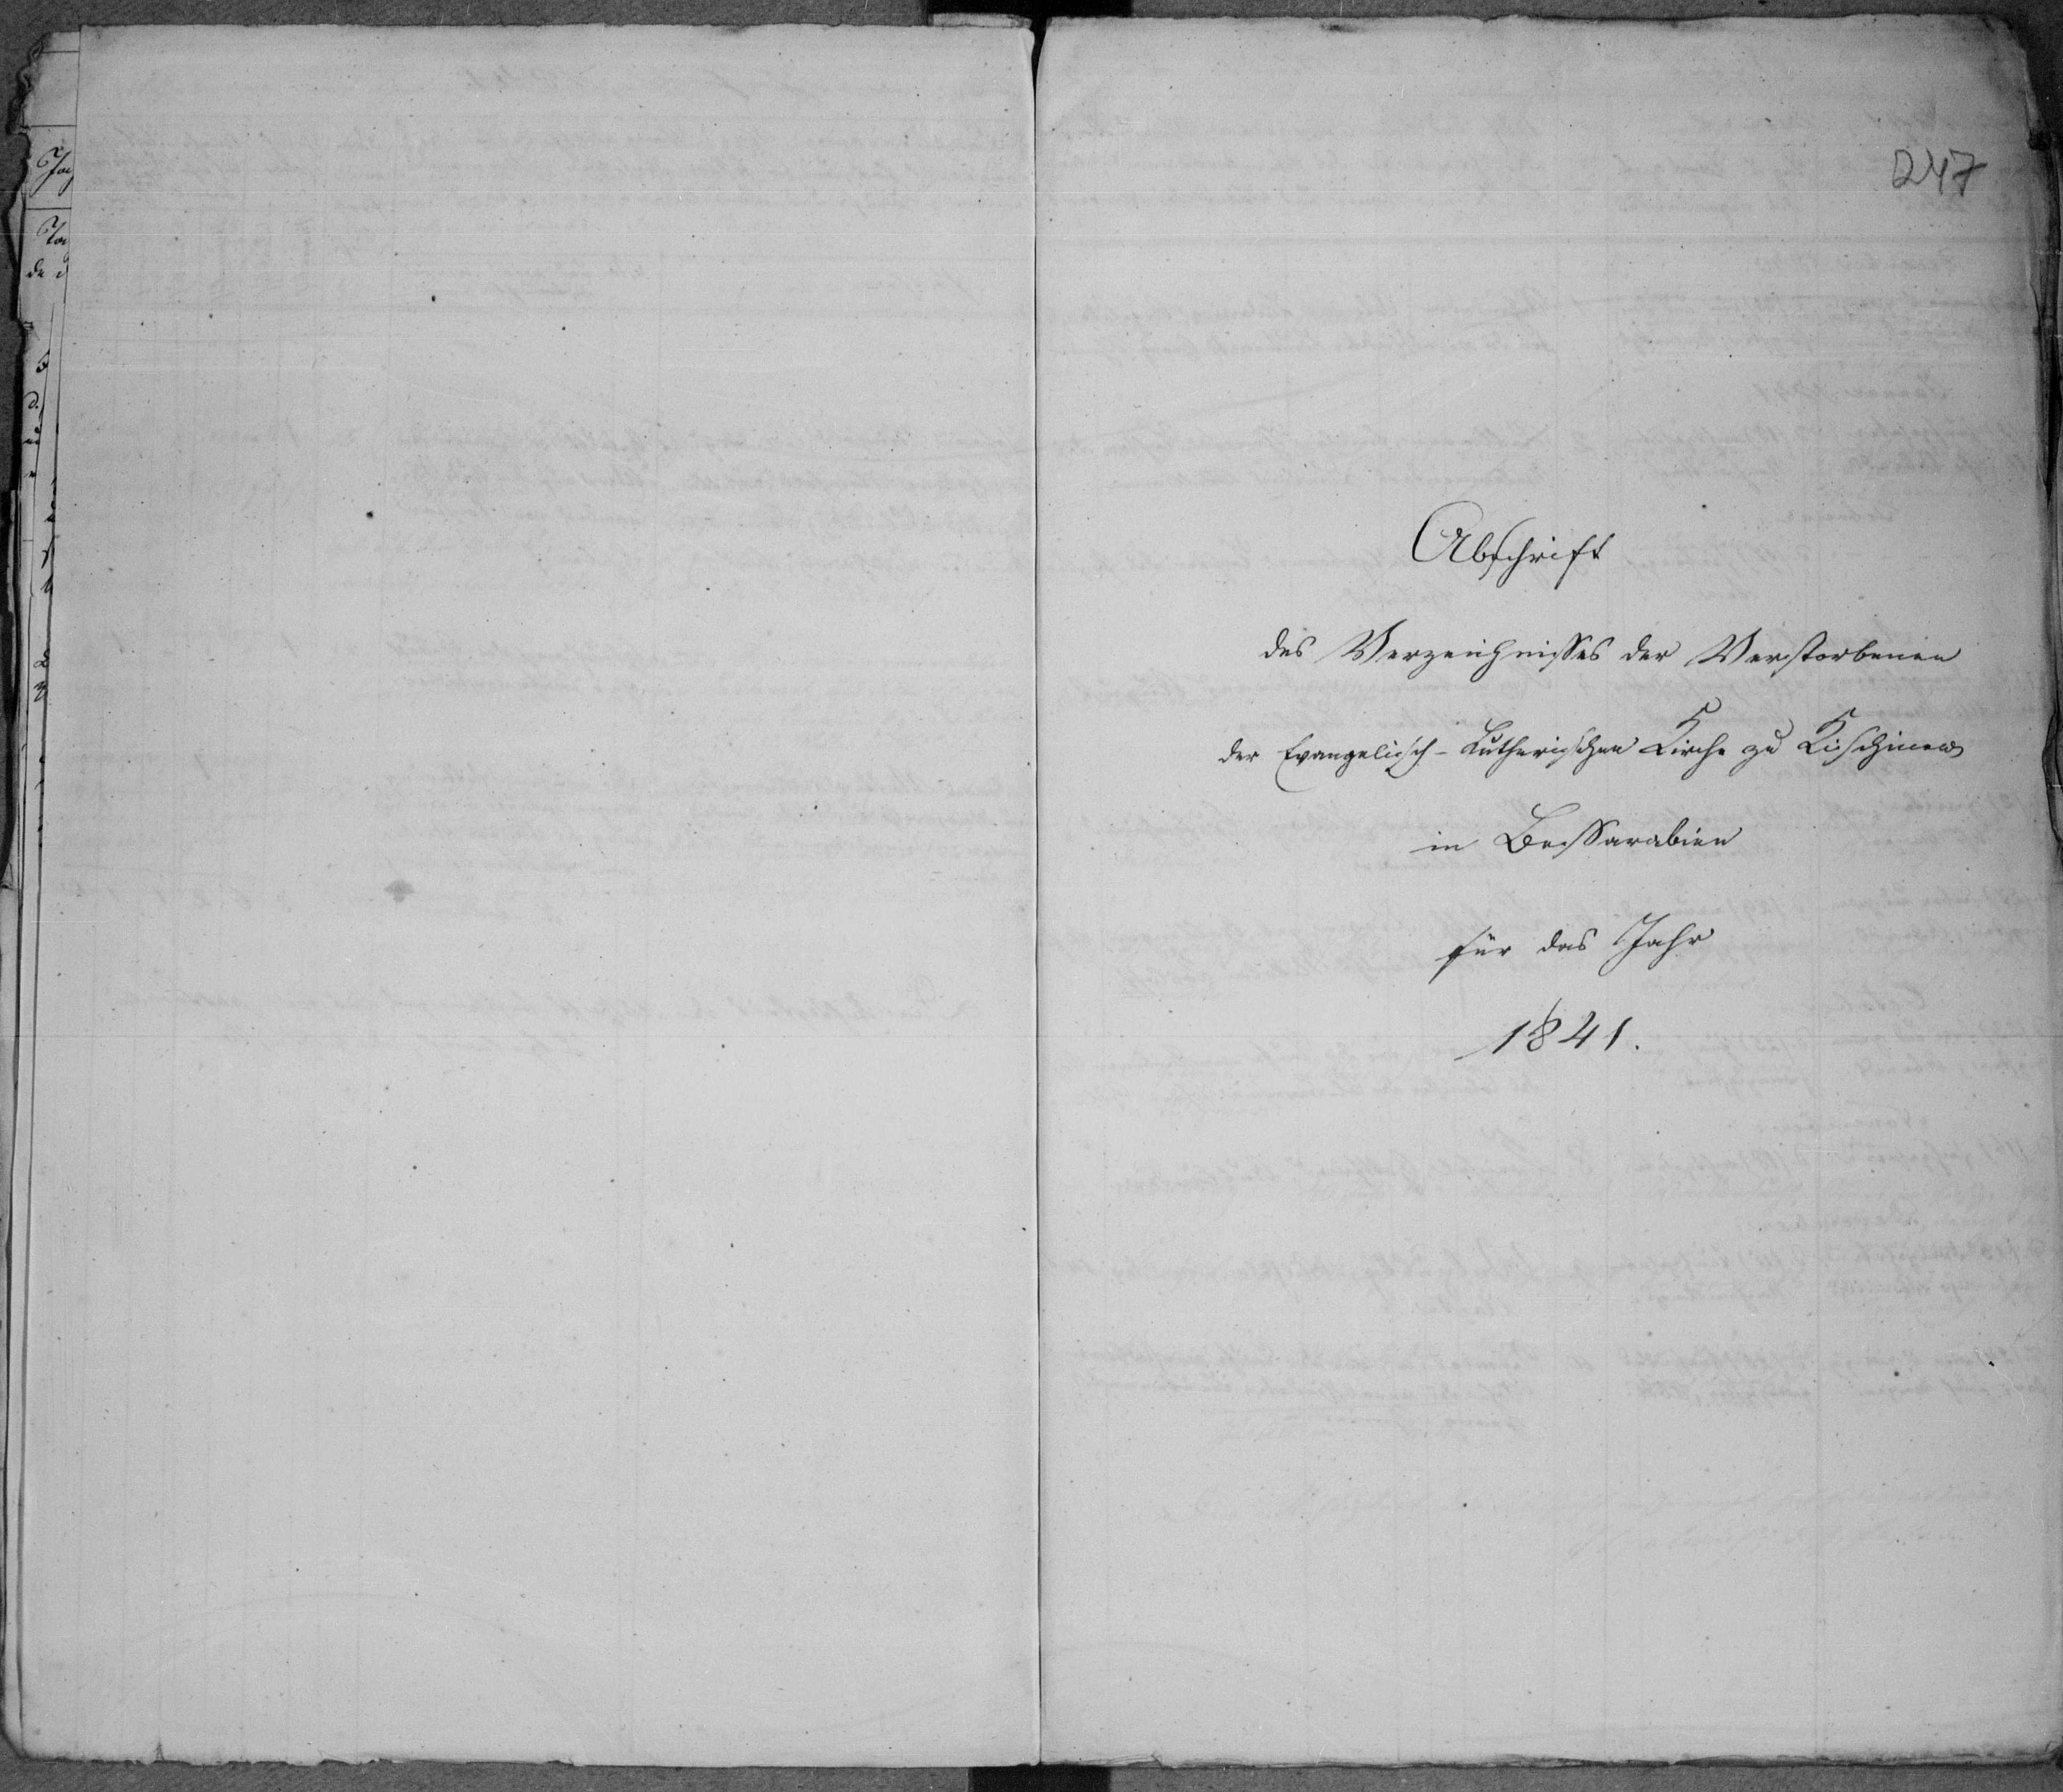 247
Abschrift
des Verzeichnisses der Verstorbenen
der Evangelisch-Lutherischen Kirche zu Kischinew
in Bessarabien
für das Jahr
1841.